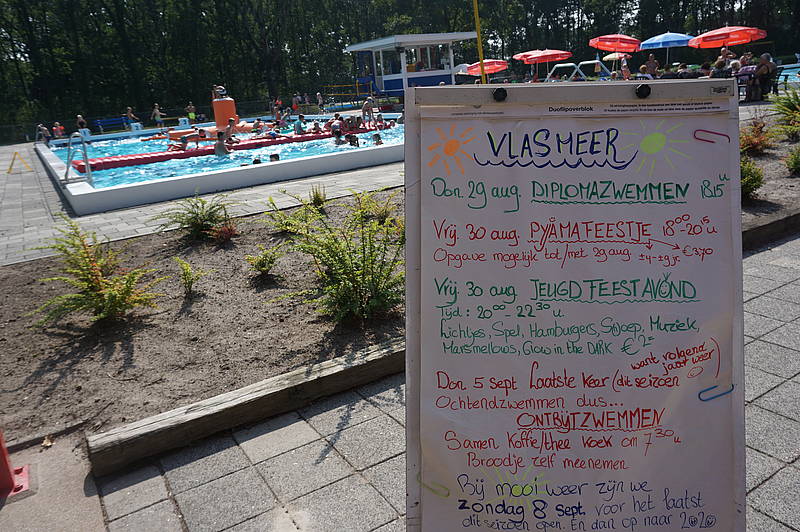 Duoflipoverblok
VLASMEER
Don. 29 aug. DIPLOMAZWEMMEN 18.15 u
Vrij. 30 aug. PYJAMAFEESTJE 18.00 - 20.15 u
Opgave mogelijk tot/met 29 aug. ±4-±9 jr €3,70
Vrij. 30 aug. JEUGD FEESTAVOND
Tijd: 20.00 - 22.30 u
Lichtjes, Spel, Hamburgers, Snoep, Muziek,
Marsmellows, Glow in the DARK €2,-
want volgend jaar weer)
Don 5 sept. Laatste keer (dit seizoen
Ochtendzwemmen dus...
ONTBIJTZWEMMEN
Samen Koffie/thee Koek om 7.30 u
Broodje zelf meenemen
Bij mooi weer zijn we
zondag 8 Sept. voor het laatst
dit seizoen open. En dan op naar 2020